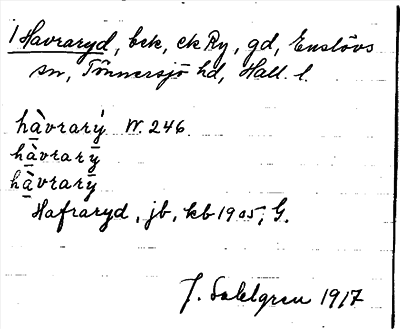 1 Havraryd, bek, ek Ry, gd, Enslövs
sn, Tönnersjö hd, Hall. l.
hàvrarý W. 246.
hàvrarȳ
hàvrarȳ
Hafraryd, jb, kb 1905, G.
J. Sahlgren 1917